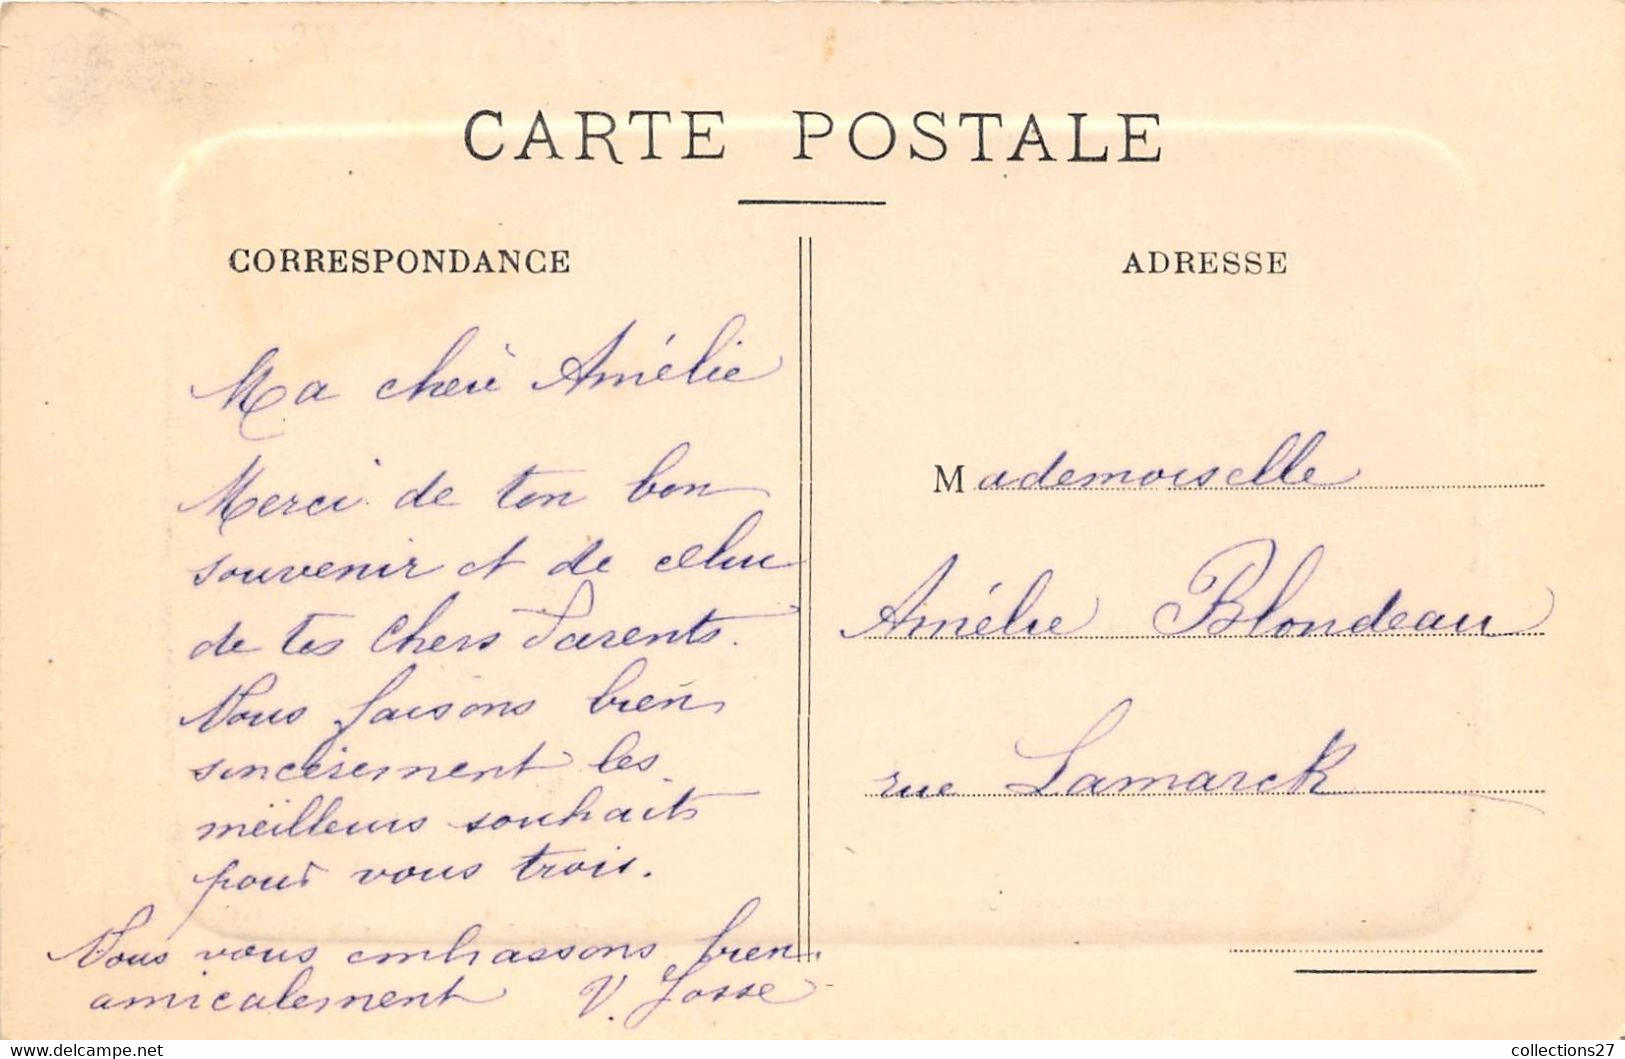 CARTE POSTALE
CORRESPONDANCE
Ma cherè Amélie
Merci de ton bon
souvenir et de celui
de tes Chers Parents.
Nous faisons bien
sincèrement les
meilleurs souhaits
pour vous trois.
Nous vous embrassons bien
amicalement V. Josse
ADRESSE
Mademoiselle
Amélie Blondeau
rue Lamarck
collections27